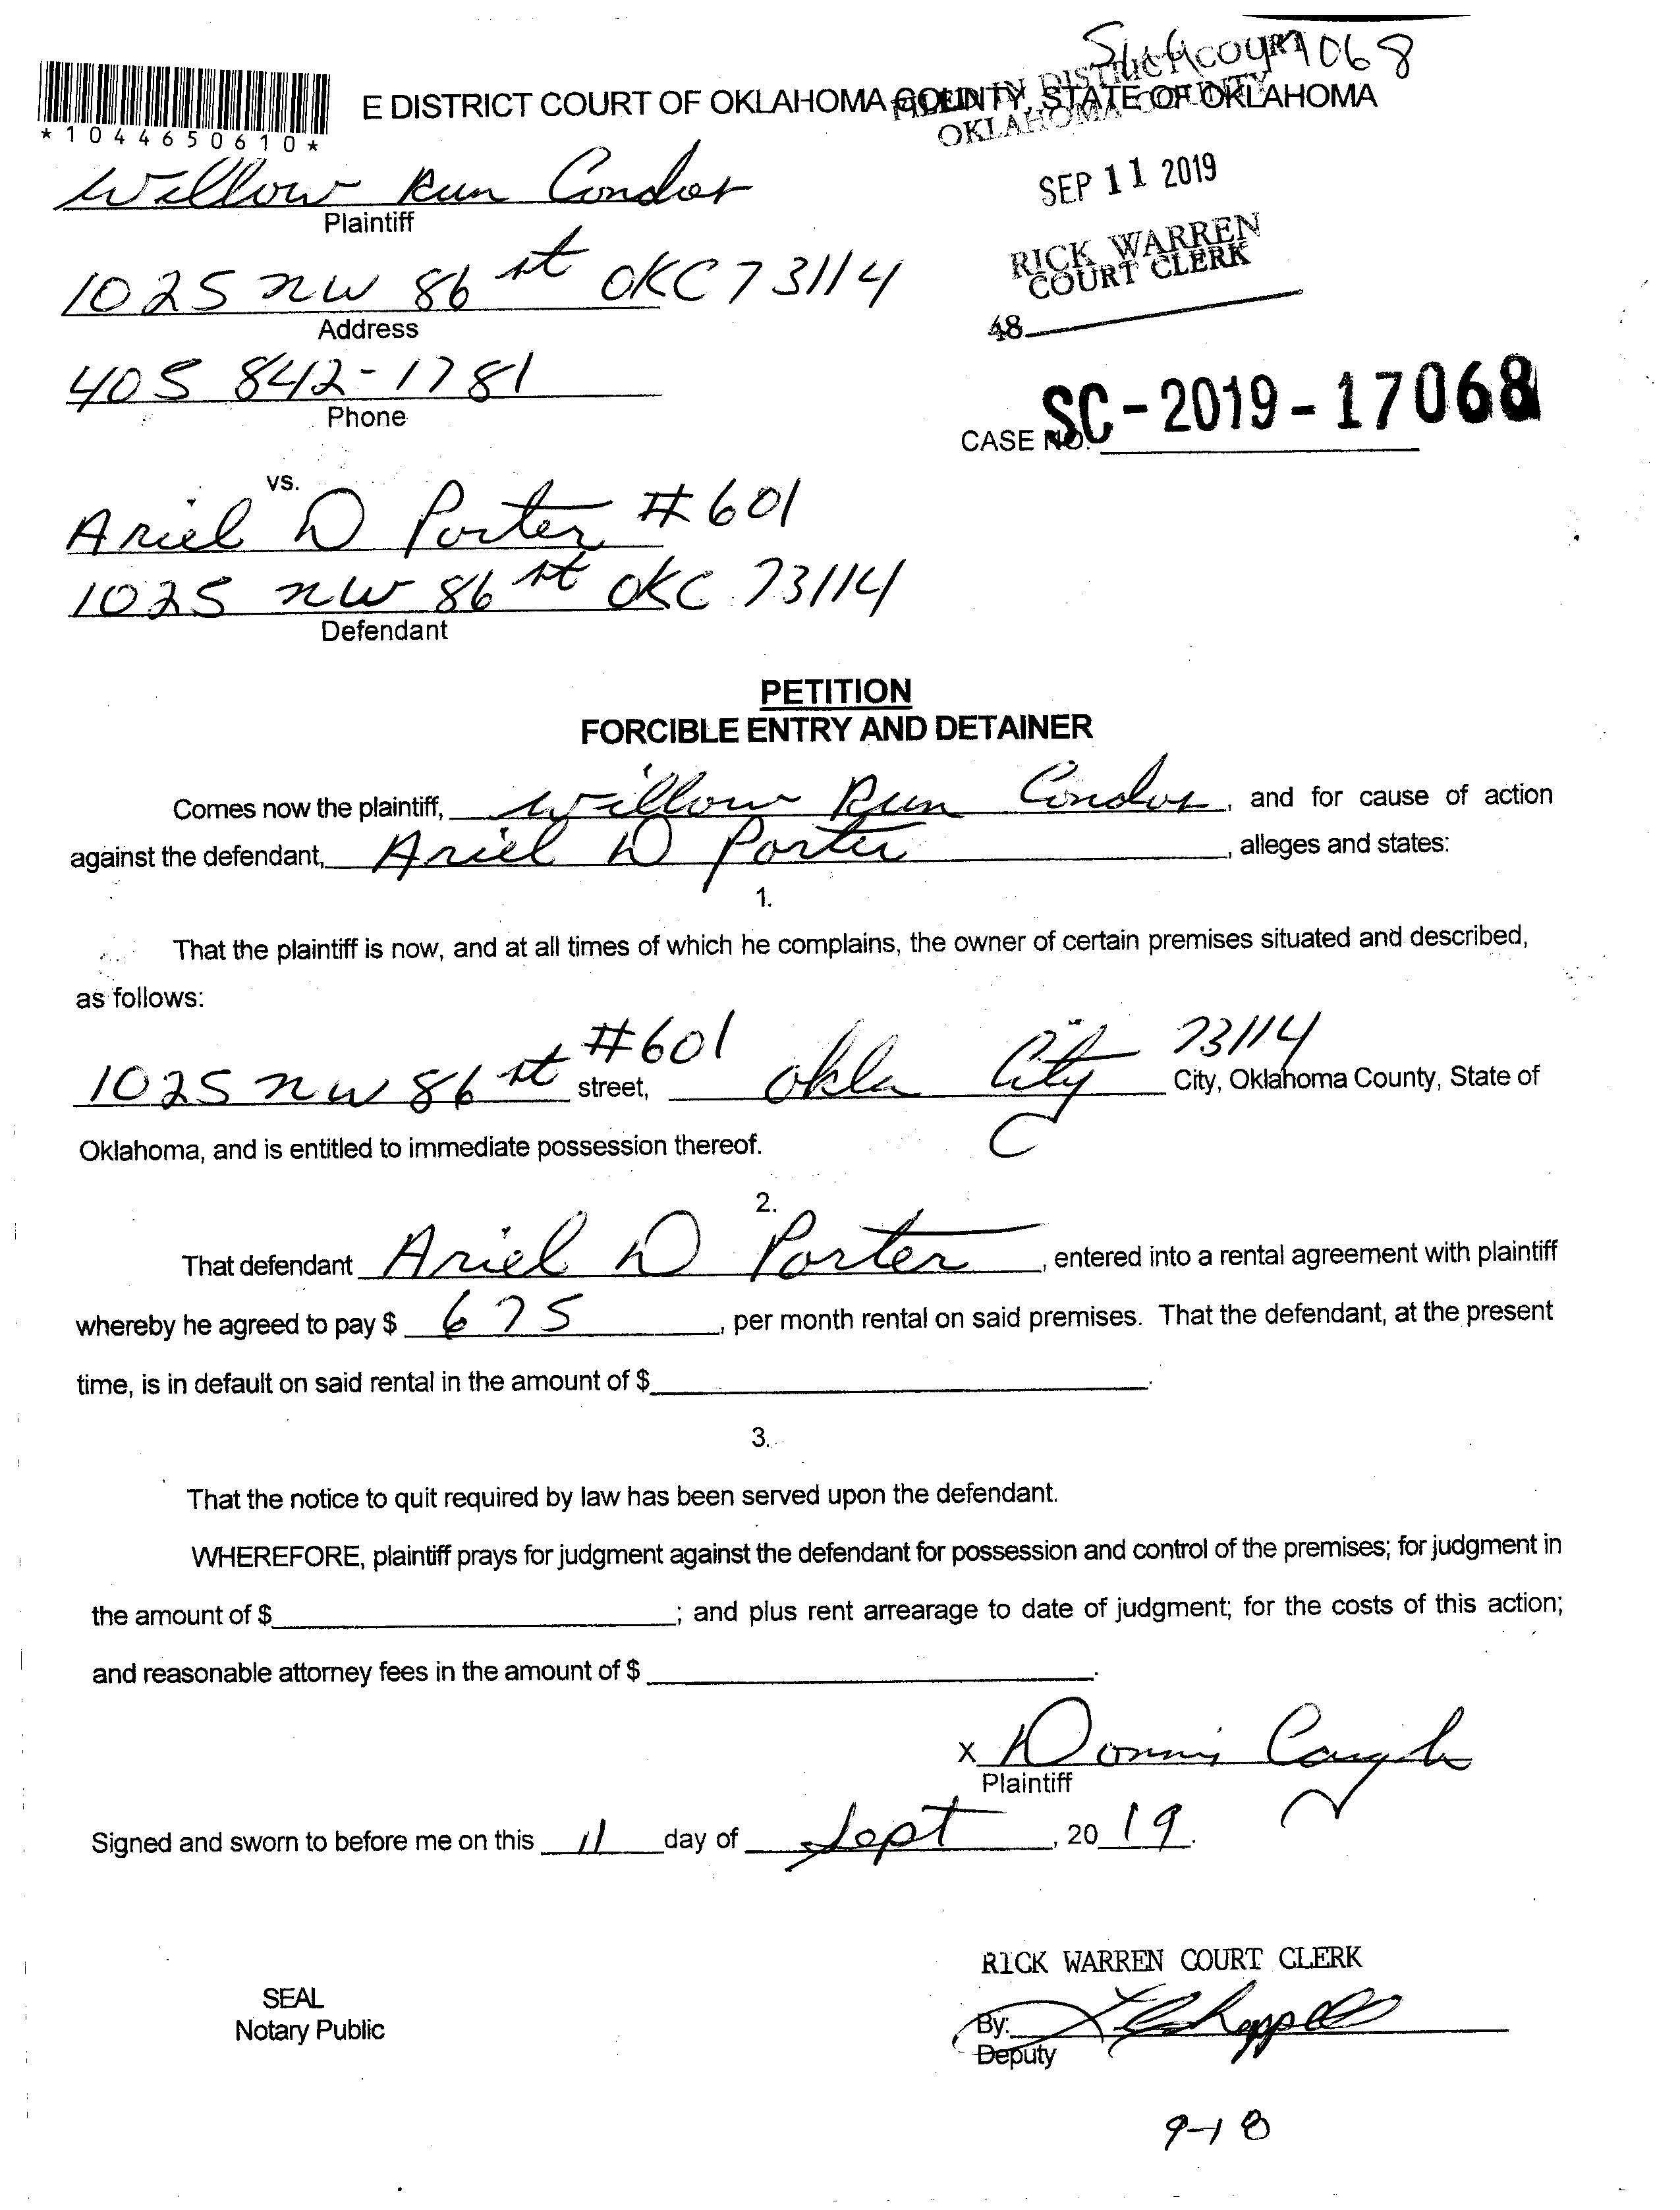 *1044650610*
E DISTRICT COURT OF OKLAHOMA COUNTY, STATE OF OKLAHOMA
FILED IN DISTRICT COURT
OKLAHOMA COUNTY
SEP 11 2019
RICK WARREN
COURT CLERK
48
Willow Run Condos
Plaintiff
1025 NW 86 st OKC 73114
Address
405 842-1781
Phone
CASE NO. SC-2019-17068
vs.
Ariel D Porter #601
1025 NW 86 st OKC 73114
Defendant
PETITION
FORCIBLE ENTRY AND DETAINER
Comes now the plaintiff, Willow Run Condos, and for cause of action
against the defendant, Ariel D Porter, alleges and states:
1.
That the plaintiff is now, and at all times of which he complains, the owner of certain premises situated and described,
as follows:
1025 NW 86 st #601 street, Okla City 73114 City, Oklahoma County, State of
Oklahoma, and is entitled to immediate possession thereof.
2.
That defendant Ariel D Porter, entered into a rental agreement with plaintiff
whereby he agreed to pay $ 675, per month rental on said premises. That the defendant, at the present
time, is in default on said rental in the amount of $ .
3.
That the notice to quit required by law has been served upon the defendant.
WHEREFORE, plaintiff prays for judgment against the defendant for possession and control of the premises; for judgment in
the amount of $ ; and plus rent arrearage to date of judgment; for the costs of this action;
and reasonable attorney fees in the amount of $ .
X
Plaintiff
Signed and sworn to before me on this 11 day of Sept, 2019.
RICK WARREN COURT CLERK
SEAL
Notary Public
By:
Deputy
9-18